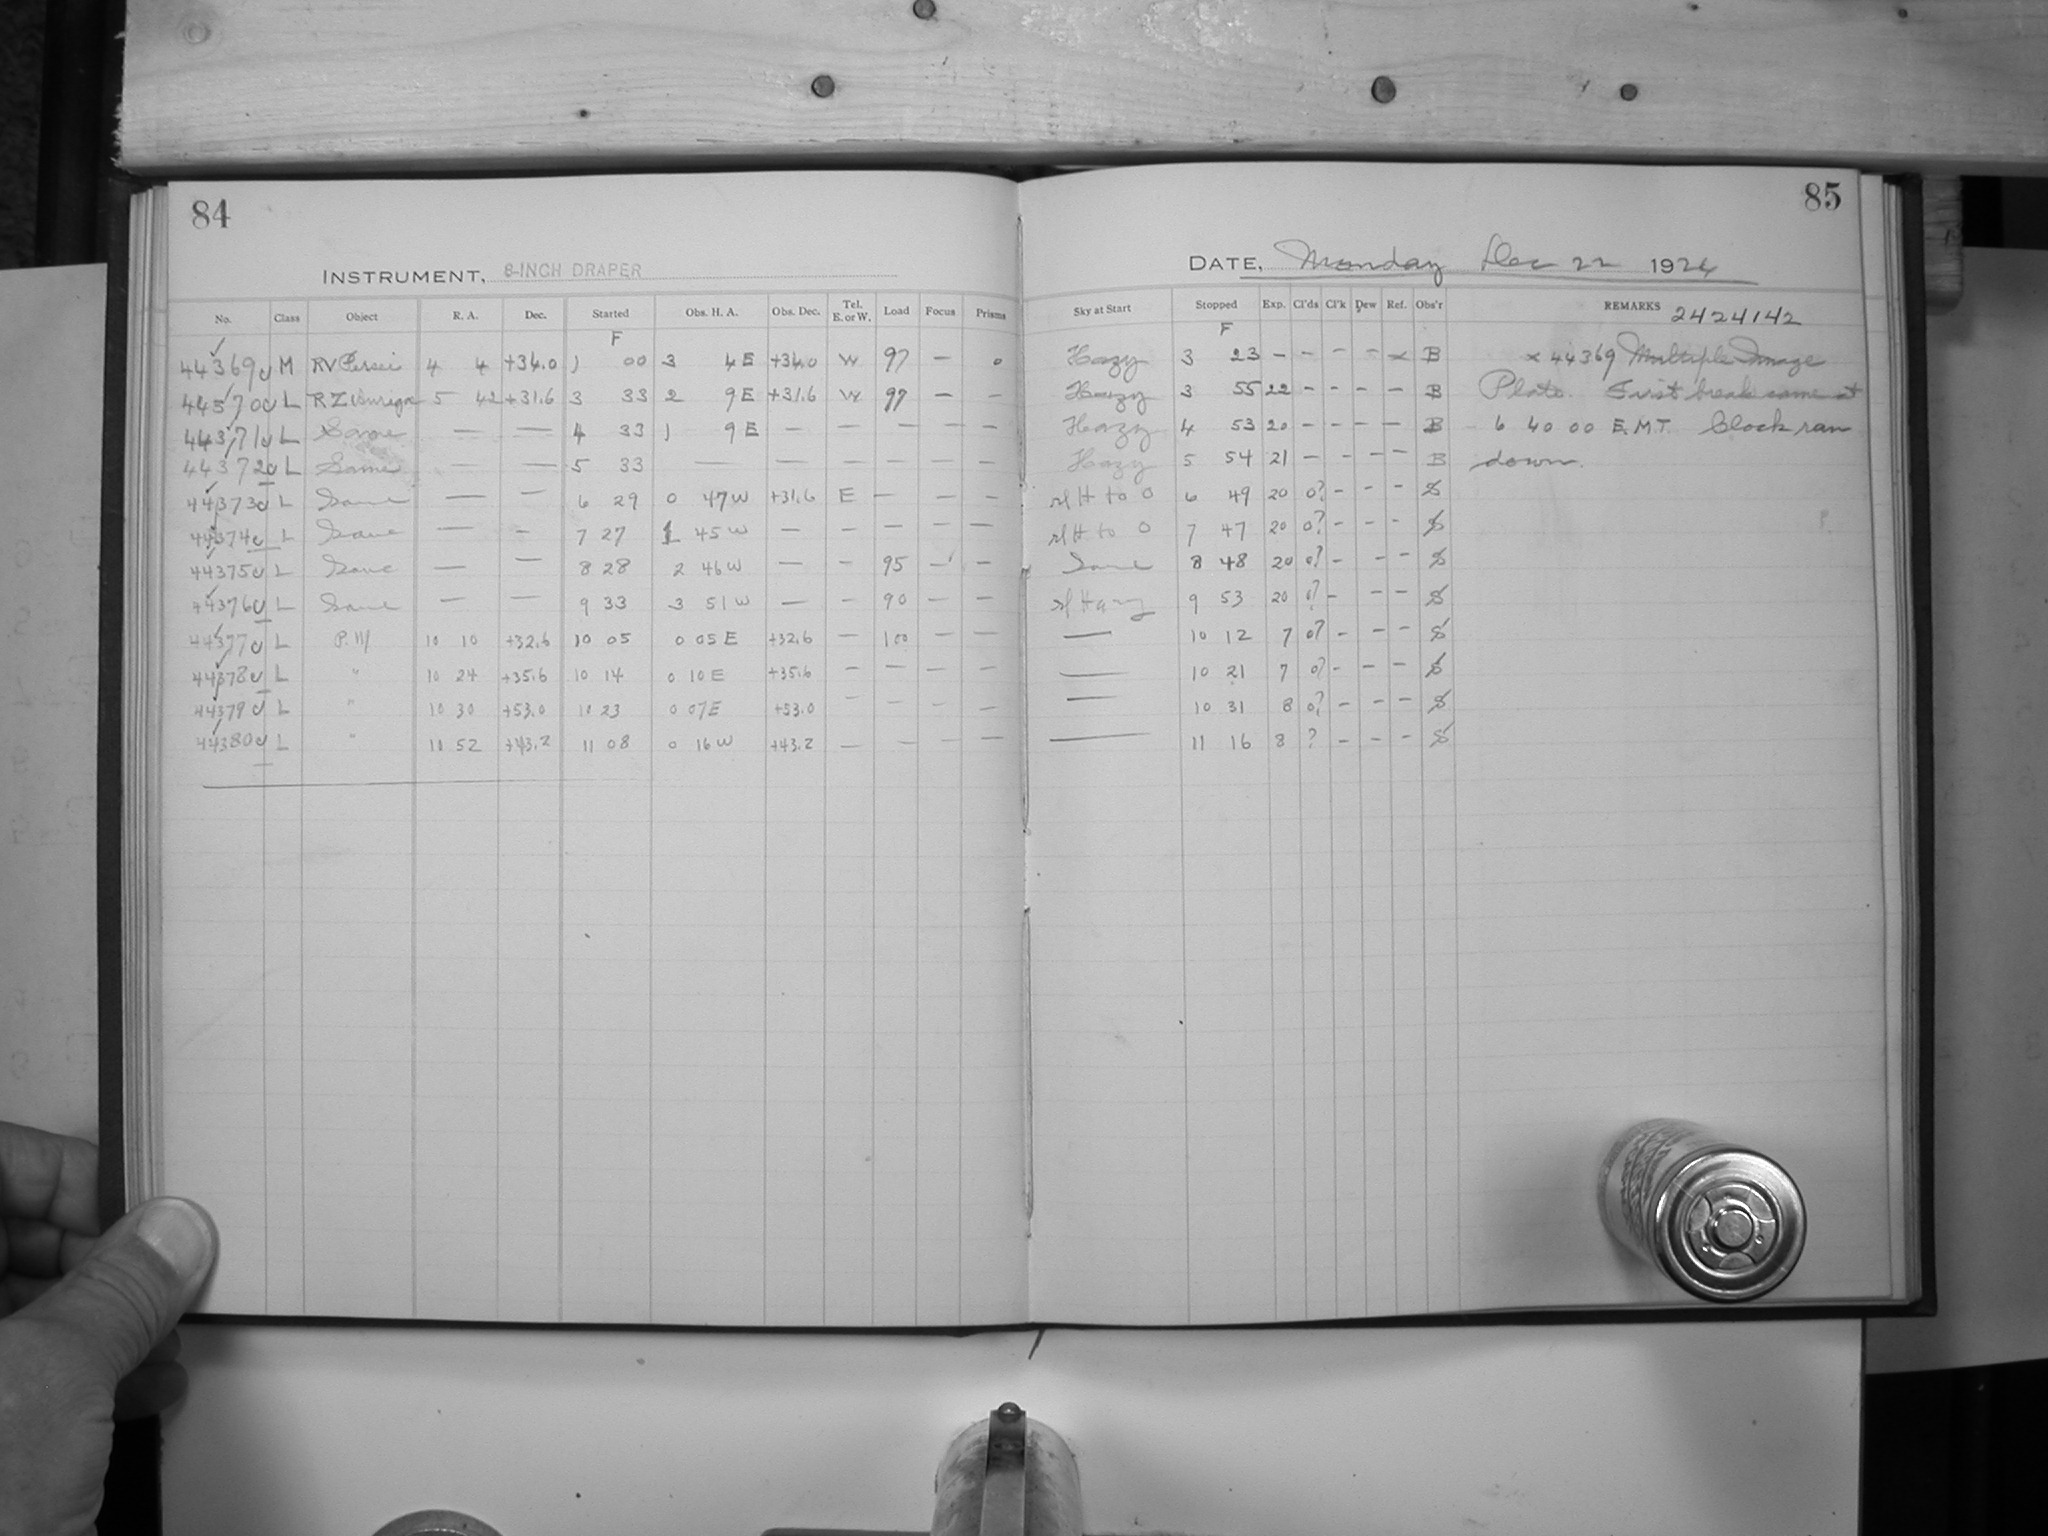 84
INSTRUMENT, 8-INCH DRAPER
No. Class Object R. A. Dec. Started Obs. H. A. Obs. Dec. Tel. E. or W. Load Focus Prisms
F
44369 M RV Persei 4 4 +34.0 1 00 3 4 E +34.0 W 97 — 0
44570 L RZ 5 42 +31.6 3 33 2 9 E +31.6 W 97 — —
44371 L Same — — 4 33 1 9 E — — — — —
44372 L Same — — 5 33 — — — — — —
44373 L Same — — 6 29 0 47 W +31.6 E — — —
44374 L Same — — 7 27 1 45 W — — — — —
44375 L Same — — 8 28 2 46 W — — 95 — —
44376 L Same — — 9 33 3 51 W — — 90 — —
44377 L 10 10 +32.6 10 05 0 05 E +32.6 — 100 — —
44378 L " 10 24 +35.6 10 14 0 10 E +35.6 — — — —
44379 L " 10 30 +53.0 10 23 0 07 E +53.0 — — — —
44380 L " 10 52 +43.2 11 08 0 16 W +43.2 — — — —
85
DATE, Monday Dec 22 1924
Sky at Start Stopped Exp. Cl'ds Cl'k Dew Ref. Obs'r REMARKS 2424142
F
Hazy 3 23 — — — — x B x 44369 Multiple Image
Hazy 3 55 22 — — — — B Plate. First break came at
Hazy 4 53 20 — — — — B 6 40 00 E.M.T. Clock ran
Hazy 5 54 21 — — — — B down.
sl H to 0 6 49 20 0? — — — S
sl H to 0 7 47 20 0? — — — S
Same 8 48 20 0? — — — S
sl Hazy 9 53 20 0? — — — S
— 10 12 7 0? — — — S
— 10 21 7 0? — — — S
— 10 31 8 0? — — — S
— 11 16 8 ? — — — S